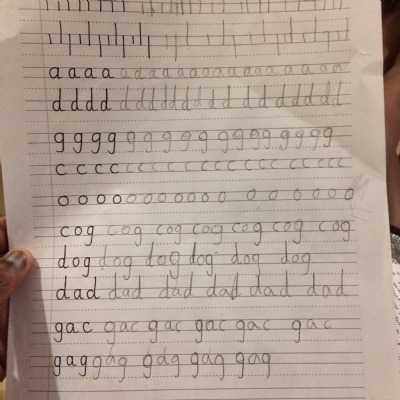 a a a a a a a a a a a a a a a a a a a
d d d d d d d d d d d d d d d d d d d d
g g g g g g g g g g g g g g g g g
c c c c c c c c c c c c c c c c c c c
o o o o o o o o o o o o o o o o o o
cog cog cog cog cog cog cog
dog dog dog dog dog dog
dad dad dad dad dad dad
gac gac gac gac gac gac
gag gag gag gag gag